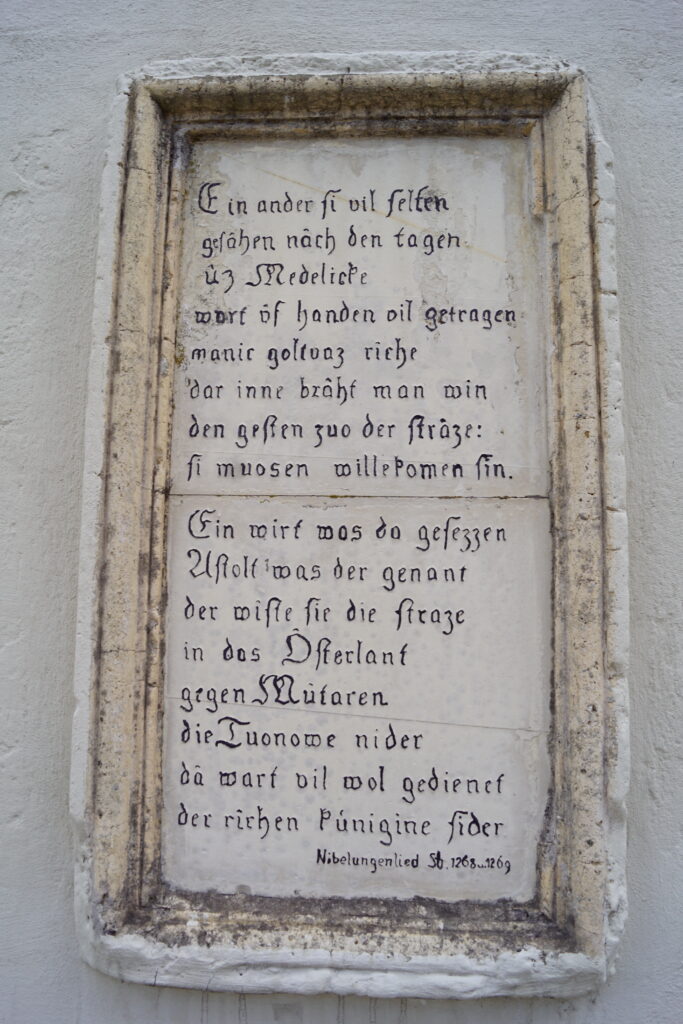 Ein ander si vil selten
gesâhen nâch den tagen
ûz Medelicke
wart ûf handen vil getragen
manic goltvaz riche
dar inne brâht man win
den gesten zuo der strâze:
si muosen willekomen sin.
Ein wirt was da gesezzen
Astolt was der genant
der wiste sie die straze
in das Ôsterlant
gegen Mûtaren
die Tuonowe nider
dâ wart vil wol gedienet
der richen kúnigine sider
Nibelungenlied Sb. 1268...1269